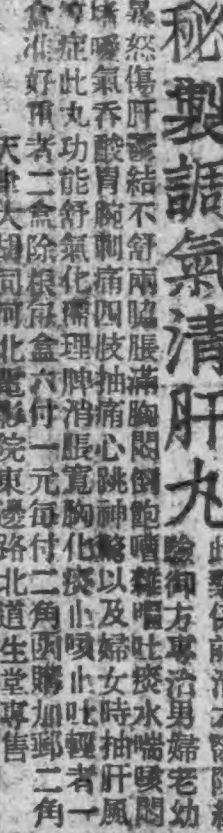 秘製調氣清肝丸
驗御方專治男婦老幼
暴怒傷肝鬱結不舒兩脇脹滿胸悶倒飽嘈雜嘔吐痰水喘咳悶
噎氣吞酸胃脘刺痛四肢抽痛心跳神驚以及婦女時抽肝風
等症此丸功能舒氣化癰理脾消脹寬胸化痰止咳止吐輕者一
盒准好重者二盒除根每盒六付一元每付二角函購加郵二角
天津大胡同河北電影院東邊路北道生堂專售